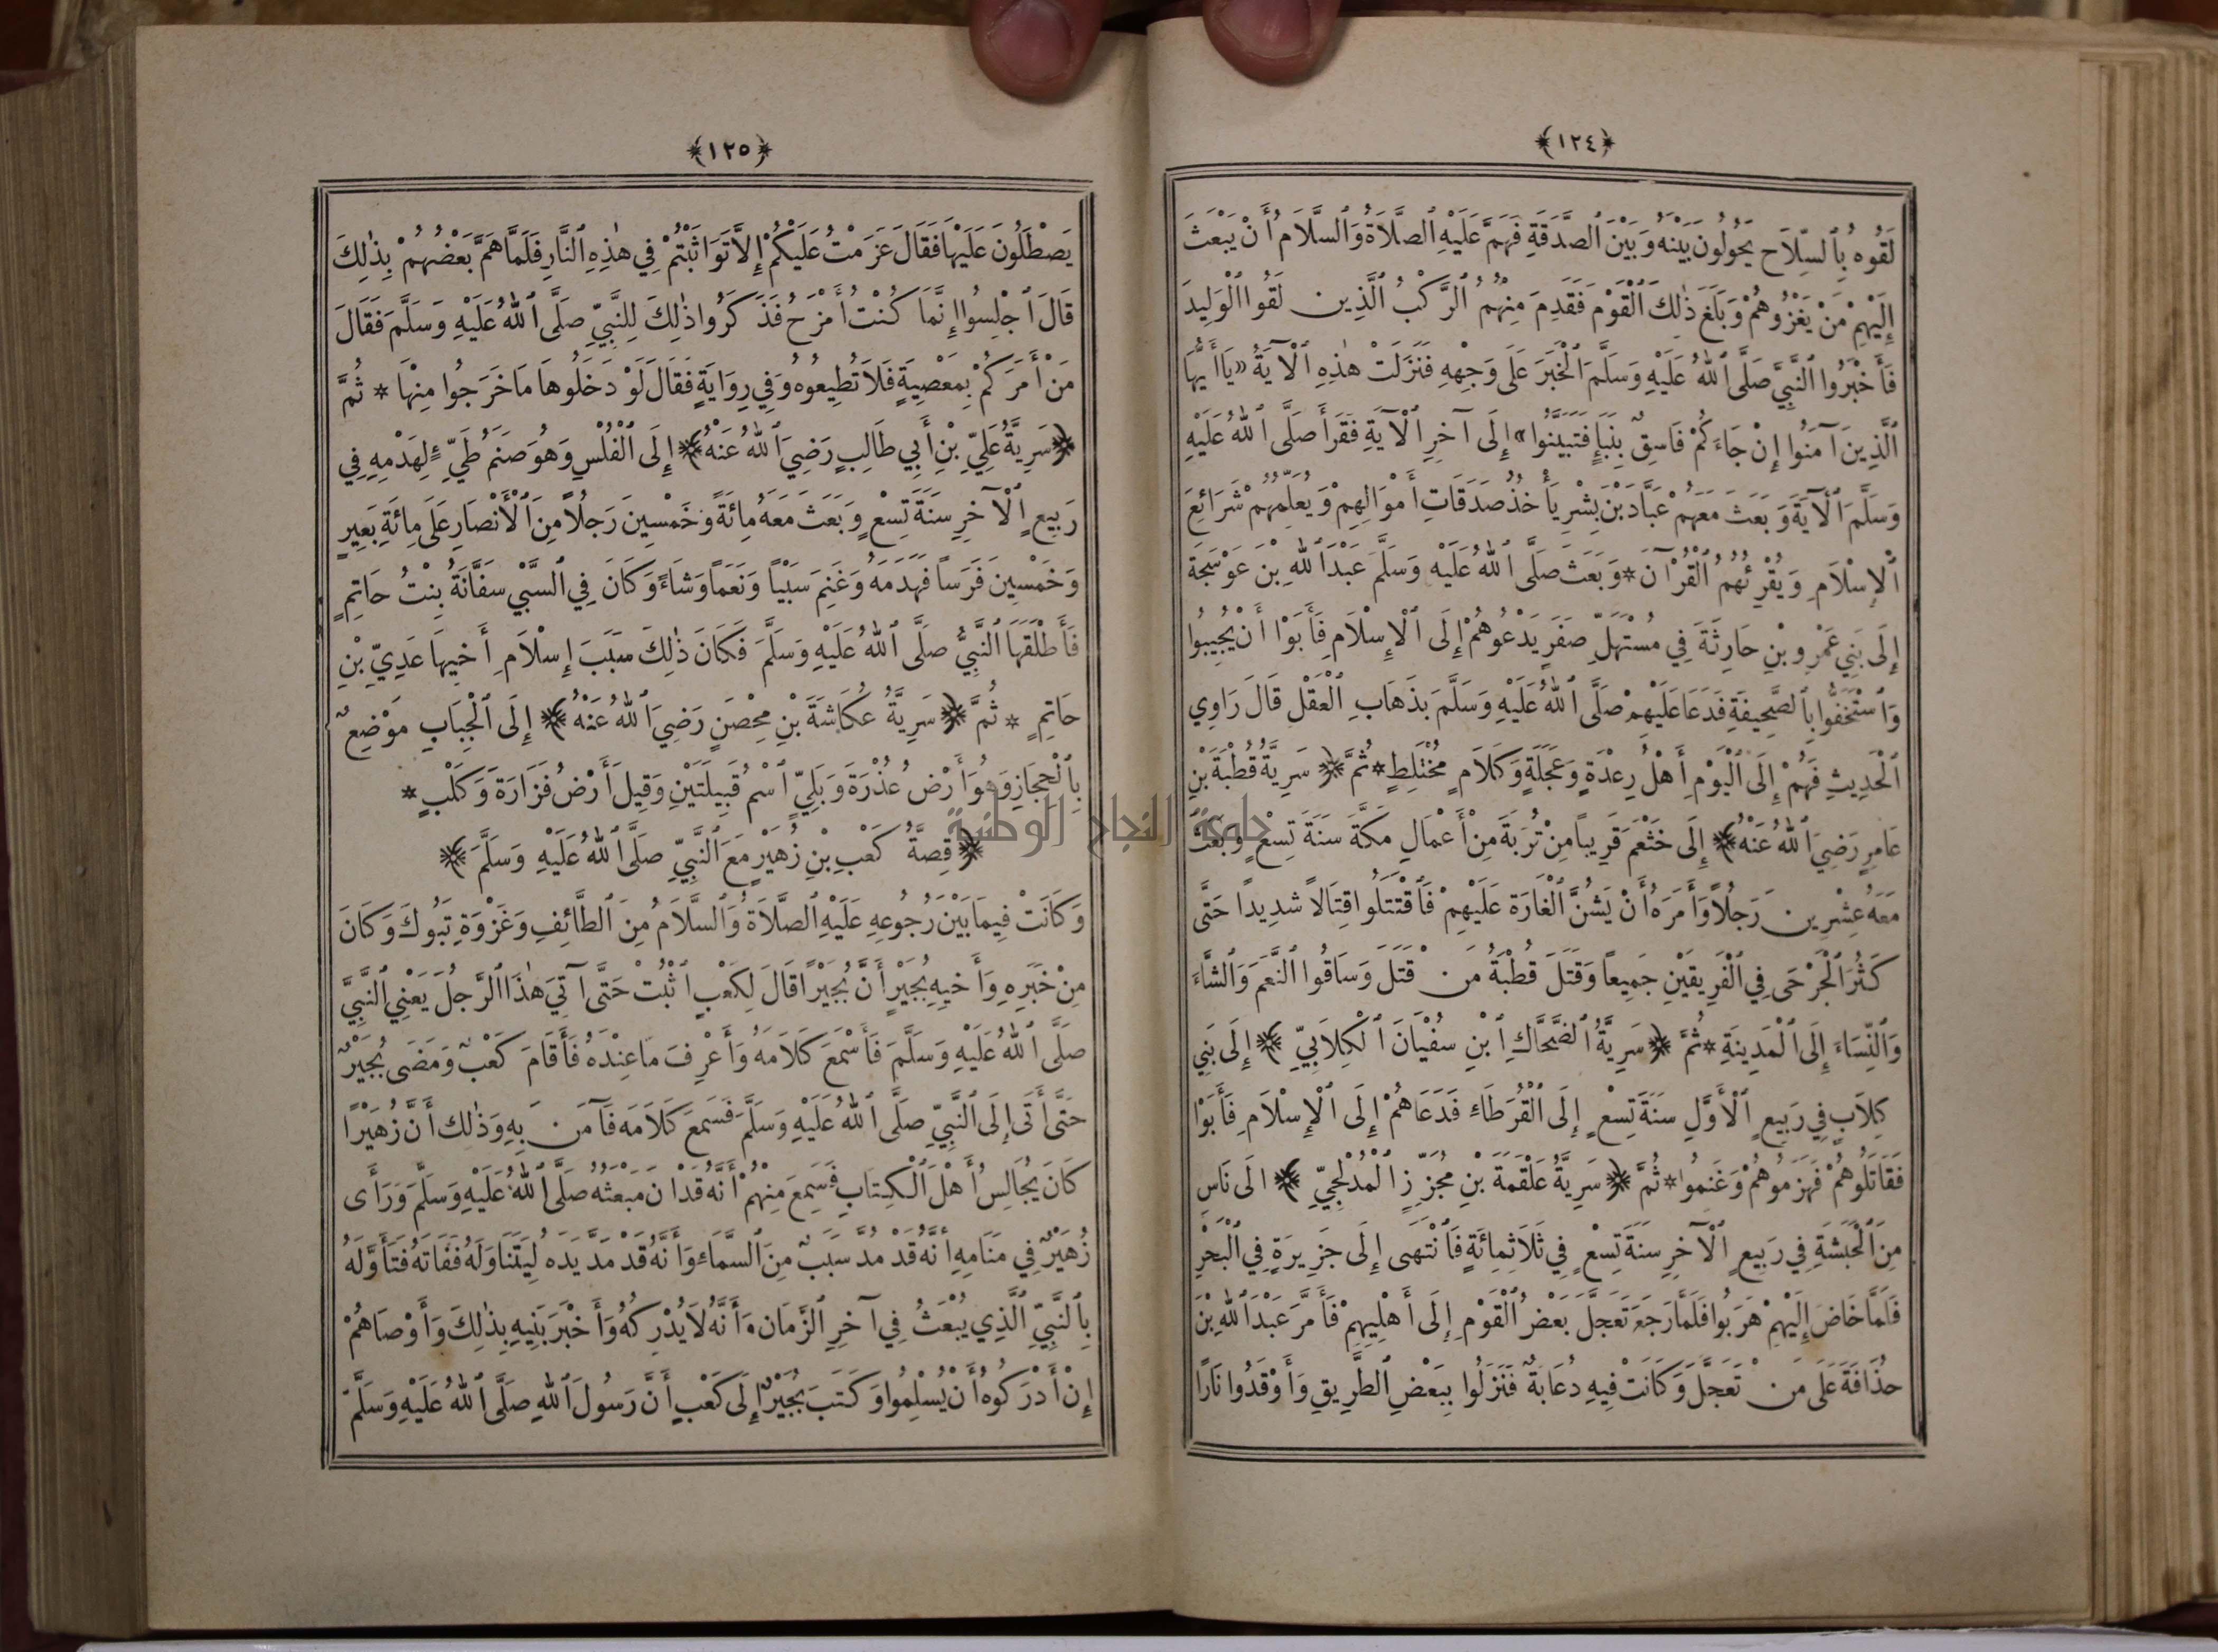 ﴿١٢٤﴾
لَقُوهُ بِٱلسِّلَاحِ يَحُولُونَ بَيْنَهُ وَبَيْنَ ٱلصَّدَقَةِ فَهَمَّ عَلَيْهِ ٱلصَّلَاةُ وَٱلسَّلَامُ أَنْ يَبْعَثَ
إِلَيْهِمْ مَنْ يَغْزُوهُمْ وَبَلَغَ ذٰلِكَ ٱلْقَوْمَ فَقَدِمَ مِنْهُمُ ٱلرَّكْبُ ٱلَّذِينَ لَقُوا ٱلْوَلِيدَ
فَأَخْبَرُوا ٱلنَّبِيَّ صَلَّى ٱللهُ عَلَيْهِ وَسَلَّمَ ٱلْخَبَرَ عَلَى وَجْهِهِ فَنَزَلَتْ هٰذِهِ ٱلْآيَةُ «يَا أَيُّهَا
ٱلَّذِينَ آمَنُوا إِنْ جَاءَكُمْ فَاسِقٌ بِنَبَإٍ فَتَبَيَّنُوا» إِلَى آخِرِ ٱلْآيَةِ فَقَرَأَ صَلَّى ٱللهُ عَلَيْهِ
وَسَلَّمَ ٱلْآيَةَ وَبَعَثَ مَعَهُمْ عَبَّادَ بْنَ بِشْرٍ يَأْخُذُ صَدَقَاتِ أَمْوَالِهِمْ وَيُعَلِّمُهُمْ شَرَائِعَ
ٱلْإِسْلَامِ وَيُقْرِئُهُمُ ٱلْقُرْآنَ * وَبَعَثَ صَلَّى ٱللهُ عَلَيْهِ وَسَلَّمَ عَبْدَ ٱللهِ بْنَ عَوْسَجَةَ
إِلَى بَنِي عَمْرِو بْنِ حَارِثَةَ فِي مُسْتَهَلِّ صَفَرٍ يَدْعُوهُمْ إِلَى ٱلْإِسْلَامِ فَأَبَوْا أَنْ يُجِيبُوا
وَٱسْتَخَفُّوا بِٱلصَّحِيفَةِ فَدَعَا عَلَيْهِمْ صَلَّى ٱللهُ عَلَيْهِ وَسَلَّمَ بِذَهَابِ ٱلْعَقْلِ قَالَ رَاوِي
ٱلْحَدِيثِ فَهُمْ إِلَى ٱلْيَوْمِ أَهْلُ رِعْدَةٍ وَعَجَلَةٍ وَكَلَامٍ مُخْتَلِطٍ * ثُمَّ ﴿سَرِيَّةُ قُطْبَةَ بْنِ
عَامِرٍ رَضِيَ ٱللهُ عَنْهُ﴾ إِلَى خَثْعَمَ قَرِيباً مِنْ تُرَبَةَ مِنْ أَعْمَالِ مَكَّةَ سَنَةَ تِسْعٍ وَبَعَثَ
مَعَهُ عِشْرِينَ رَجُلاً وَأَمَرَهُ أَنْ يَشُنَّ ٱلْغَارَةَ عَلَيْهِمْ فَٱقْتَتَلُوا قِتَالاً شَدِيداً حَتَّى
كَثُرَ ٱلْجَرْحَى فِي ٱلْفَرِيقَيْنِ جَمِيعاً وَقَتَلَ قُطْبَةُ مَنْ قَتَلَ وَسَاقُوا ٱلنَّعَمَ وَٱلشَّاءَ
وَٱلنِّسَاءَ إِلَى ٱلْمَدِينَةِ * ثُمَّ ﴿سَرِيَّةُ ٱلضَّحَّاكِ ٱبْنِ سُفْيَانَ ٱلْكِلَابِيِّ﴾ إِلَى بَنِي
كِلَابٍ فِي رَبِيعٍ ٱلْأَوَّلِ سَنَةَ تِسْعٍ إِلَى ٱلْقُرَطَاءِ فَدَعَاهُمْ إِلَى ٱلْإِسْلَامِ فَأَبَوْا
فَقَاتَلُوهُمْ فَهَزَمُوهُمْ وَغَنِمُوا * ثُمَّ ﴿سَرِيَّةُ عَلْقَمَةَ بْنِ مُجَزِّزٍ ٱلْمُدْلِجِيِّ﴾ الَى نَاسٍ
مِنَ ٱلْحَبَشَةِ فِي رَبِيعٍ ٱلْآخِرِ سَنَةَ تِسْعٍ فِي ثَلَاثِمِائَةٍ فَٱنْتَهَى إِلَى جَزِيرَةٍ فِي ٱلْبَحْرِ
فَلَمَّا خَاضَ إِلَيْهِمْ هَرَبُوا فَلَمَّا رَجَعَ تَعَجَّلَ بَعْضُ ٱلْقَوْمِ إِلَى أَهْلِيهِمْ فَأَمَّرَ عَبْدَ ٱللهِ بْنَ
حُذَافَةَ عَلَى مَنْ تَعَجَّلَ وَكَانَتْ فِيهِ دُعَابَةٌ فَنَزَلُوا بِبَعْضِ ٱلطَّرِيقِ وَأَوْقَدُوا نَاراً
﴿١٢٥﴾
يَصْطَلُونَ عَلَيْهَا فَقَالَ عَزَمْتُ عَلَيْكُمْ إِلاَّ تَوَاثَبْتُمْ فِي هٰذِهِ ٱلنَّارِ فَلَمَّا هَمَّ بَعْضُهُمْ بِذٰلِكَ
قَالَ ٱجْلِسُوا إِنَّمَا كُنْتُ أَمْزَحُ فَذَكَرُوا ذٰلِكَ لِلنَّبِيِّ صَلَّى ٱللهُ عَلَيْهِ وَسَلَّمَ فَقَالَ
مَنْ أَمَرَكُمْ بِمَعْصِيَةٍ فَلَا تُطِيعُوهُ وَفِي رِوَايَةٍ فَقَالَ لَوْ دَخَلُوهَا مَا خَرَجُوا مِنْهَا * ثُمَّ
﴿سَرِيَّةُ عَلِيِّ بْنِ أَبِي طَالِبٍ رَضِيَ ٱللهُ عَنْهُ﴾ إِلَى ٱلْفُلْسِ وَهُوَ صَنَمُ طَيِّءٍ لِهَدْمِهِ فِي
رَبِيعٍ ٱلْآخِرِ سَنَةَ تِسْعٍ وَبَعَثَ مَعَهُ مِائَةً وَخَمْسِينَ رَجُلاً مِنَ ٱلْأَنْصَارِ عَلَى مِائَةِ بَعِيرٍ
وَخَمْسِينَ فَرَساً فَهَدَمَهُ وَغَنِمَ سَبْيًا وَنَعَماً وَشَاءً وَكَانَ فِي ٱلسَّبْيِ سَفَّانَةُ بِنْتُ حَاتِمٍ
فَأَطْلَقَهَا ٱلنَّبِيُّ صَلَّى ٱللهُ عَلَيْهِ وَسَلَّمَ فَكَانَ ذٰلِكَ سَبَبَ إِسْلَامِ أَخِيهَا عَدِيِّ بْنِ
حَاتِمٍ * ثُمَّ ﴿سَرِيَّةُ عُكَاشَةَ بْنِ مِحْصَنٍ رَضِيَ ٱللهُ عَنْهُ﴾ إِلَى ٱلْجِبَابِ مَوْضِعٌ
بِٱلْحِجَازِ وَهُوَ أَرْضُ عُذْرَةَ وَبَلِيٍّ ٱسْمُ قَبِيلَتَيْنِ وَقِيلَ أَرْضُ فَزَارَةَ وَكَلْبٍ *
﴿قِصَّةُ كَعْبِ بْنِ زُهَيْرٍ مَعَ ٱلنَّبِيِّ صَلَّى ٱللهُ عَلَيْهِ وَسَلَّمَ﴾
وَكَانَتْ فِيمَا بَيْنَ رُجُوعِهِ عَلَيْهِ ٱلصَّلَاةُ وَٱلسَّلَامُ مِنَ ٱلطَّائِفِ وَغَزْوَةِ تَبُوكَ وَكَانَ
مِنْ خَبَرِهِ وَأَخِيهِ بُجَيْرٍ أَنَّ بُجَيْرًا قَالَ لِكَعْبٍ ٱثْبُتْ حَتَّى آتِيَ هٰذَا ٱلرَّجُلَ يَعْنِي ٱلنَّبِيَّ
صَلَّى ٱللهُ عَلَيْهِ وَسَلَّمَ فَأَسْمَعَ كَلَامَهُ وَأَعْرِفَ مَا عِنْدَهُ فَأَقَامَ كَعْبٌ وَمَضَى بُجَيْرٌ
حَتَّى أَتَى إِلَى ٱلنَّبِيِّ صَلَّى ٱللهُ عَلَيْهِ وَسَلَّمَ فَسَمِعَ كَلَامَهُ فَآمَنَ بِهِ وَذٰلِكَ أَنَّ زُهَيْرًا
كَانَ يُجَالِسُ أَهْلَ ٱلْكِتَابِ فَسَمِعَ مِنْهُمْ أَنَّهُ قَدْ آنَ مَبْعَثُهُ صَلَّى ٱللهُ عَلَيْهِ وَسَلَّمَ وَرَأَى
زُهَيْرٌ فِي مَنَامِهِ أَنَّهُ قَدْ مُدَّ سَبَبٌ مِنَ ٱلسَّمَاءِ وَأَنَّهُ قَدْ مَدَّ يَدَهُ لِيَتَنَاوَلَهُ فَفَاتَهُ فَتَأَوَّلَهُ
بِٱلنَّبِيِّ ٱلَّذِي يُبْعَثُ فِي آخِرِ ٱلزَّمَانِ وَأَنَّهُ لَا يُدْرِكُهُ وَأَخْبَرَ بَنِيهِ بِذٰلِكَ وَأَوْصَاهُمْ
إِنْ أَدْرَكُوهُ أَنْ يُسْلِمُوا وَكَتَبَ بُجَيْرٌ إِلَى كَعْبٍ أَنَّ رَسُولَ ٱللهِ صَلَّى ٱللهُ عَلَيْهِ وَسَلَّمَ
جامعة النجاح الوطنية